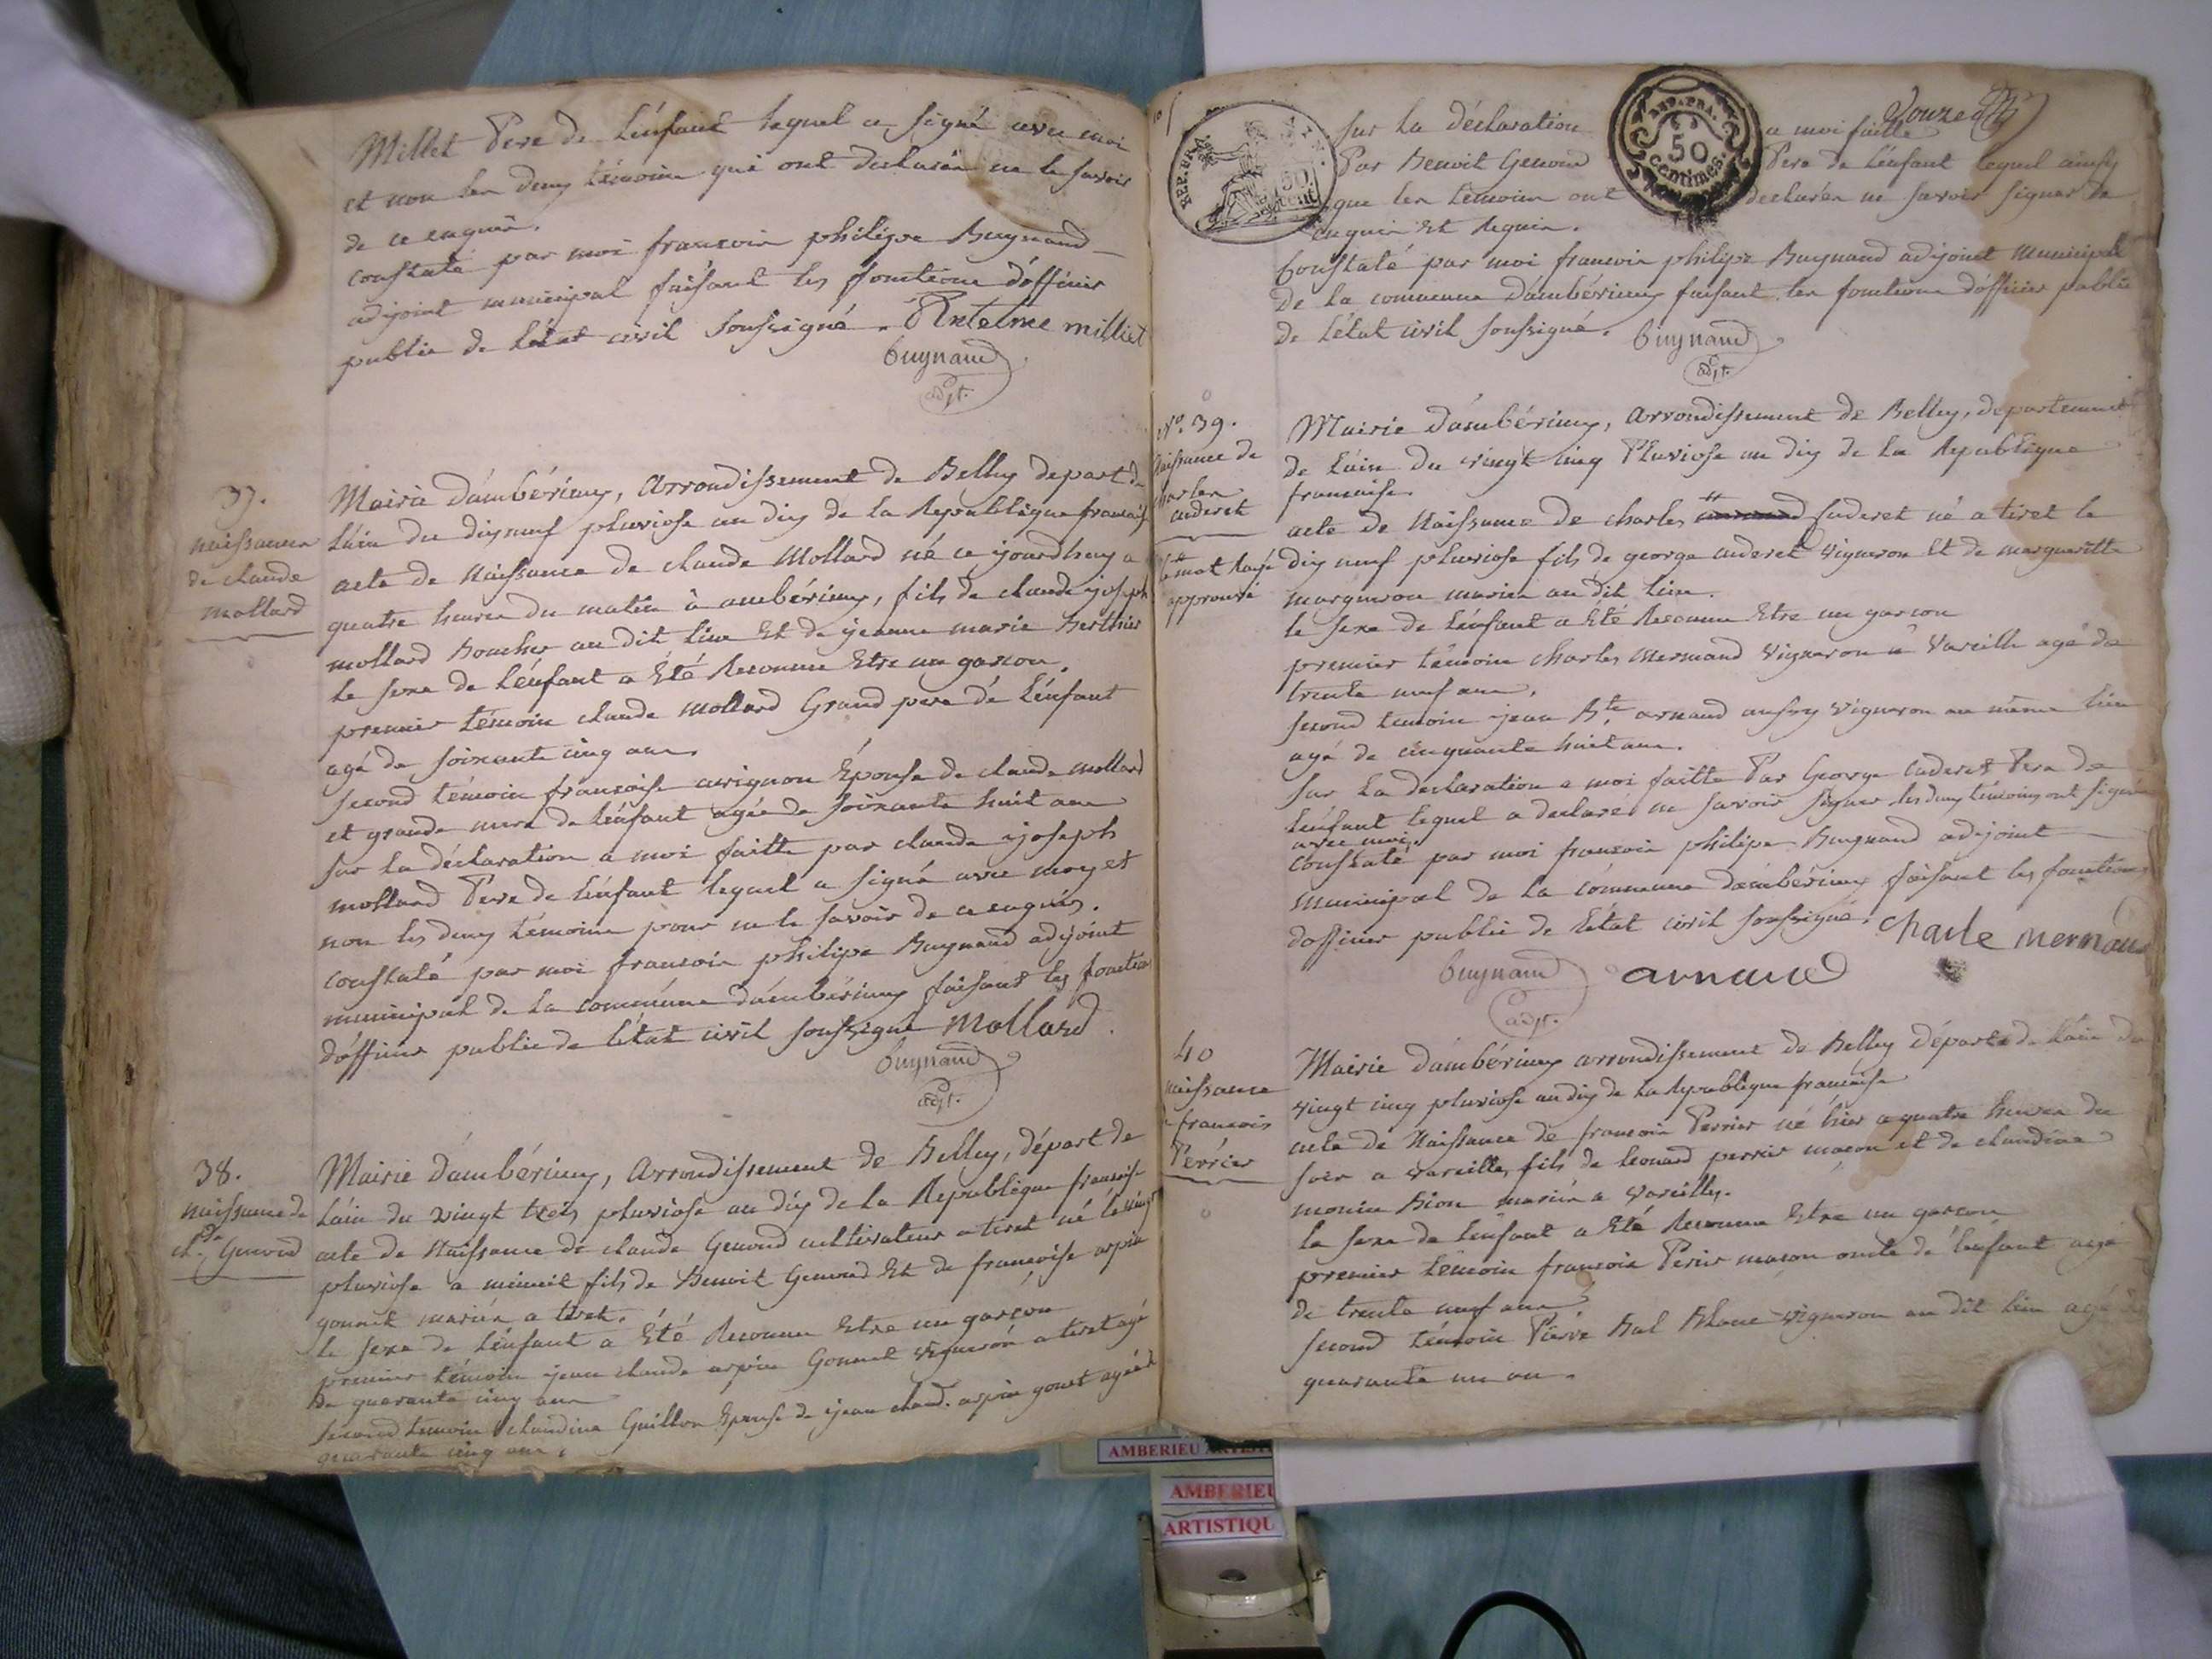 Millet Pere de L'énfant lequel a signé avec moi
et non les deux témoins qui ont déclarés ne le savoir
de ce enquis.
constaté par moi francois philipe Buynand
adjoint municipal faisant les fonctions d'officier
public de L'état civil soussigné. Antelme milliet
buynand
adjt.
37.
naissance
de claude
mollard
Mairie d'ambérieux, arrondissement de Belley depart de
L'ain du dixneuf pluviose an dix de la Republique francaise
acte de Naissance de claude Mollard né ce ijourdhuy a
quatre heures du matin à ambérieux, fils de claude ijoseph
mollard Boucher au dit lieu Et de ijeanne marie Berthier
le sexe de L'énfant a Été Reconnu Etre un garcon.
premier témoin claude Mollard Grand pere de L'énfant
agé de soixante cinq ans.
second témoin francoise avignon Épouse de claude mollard
et grande mere de L'énfant agée de soixante huit ans
sur la déclaration a moi faitte par claude ijoseph
mollard Pere de L'énfant lequel a signé avec moy et
non les deux témoins pour ne le savoir de ce enquis.
constaté par moi francois philipe Buynand adijoint
municipal de la commune d'ambérieux faisant les fonctions
d'officier public de L'état civil soussigné Mollard
buynand
adjt.
38.
naissance de
cl.de Genoud
Mairie d'ambérieux, Arrondissement de Belley, départ de
L'ain du vingt trois pluviose an dix de la Republique francaise
acte de Naissance de claude Genoud cultivateur a tiret né le vingt
pluviose a minuit fils de Benoit Genoud Et de francoise arpin
gonnet mariés a tiret.
le sexe de L'énfant a Été Reconnu Etre un garcon
premier témoin ijean claude arpin Gonnet vigneron a tiret agé
de quarante cinq ans
second témoin claudine Guillon Epouse de ijean claud. arpin gonet agée de
quarante cinq ans.
REP. FRA.
50
REP. FRA.
50
centimes.
Douze
sur la déclaration a moi faitte
Par Benoit Genoud Pere de L'énfant lequel ainsy
que les témoins ont déclarés ne savoir signer de
ce enquis Et Requis.
Constaté par moi francois philipe Buynand adijoint municipal
de la commune d'ambérieux faisant les fonctions d'officier public
de L'état civil soussigné. buynand
adjt.
No. 39.
Naissance de
charles
cuderet
le mot Rayé
approuvé
Mairie d'ambérieux, arrondissement de Belley, departement
de L'ain du vingt cinq Pluviose an dix de la Republique
francaise.
acte de Naissance de charles cuderet né a tiret le
dix neuf pluviose fils de george cuderet vigneron Et de margueritte
marguson mariés au dit lieu.
le sexe de L'énfant a Été Reconnu Etre un garcon
premier témoin charles mermand vigneron a vareille agé de
trente neuf ans.
second temoin ijean Bte. arnaud aussy vigneron au même lieu
agé de cinquante huit ans.
sur la declaration a moi faitte Par George cuderet Pere de
L'énfant lequel a declaré ne savoir signer les deux témoins ont signés
avec moi.
constaté par moi francois philipe Buynand adijoint
municipal de la commune d'ambérieux faisant les fonctions
d'officier public de L'état civil soussigné. charle mermand
buynand arnaud
adjt.
40
naissance
de francois
Périer
Mairie d'ambérieux arrondissement de Belley départ de L'ain du
vingt cinq pluviose an dix de la Republique francaise
acte de Naissance de francois Perrier né hier a quatre heures du
soir a vareilles, fils de leonard perrier maçon et de claudine
monin Bion mariés a vareilles.
le sexe de L'enfant a Eté Reconnu Etre un garcon
premier témoin francois Perier macon oncle de L'énfant agé
de trente neuf ans.
second témoin Pierre Bal Blanc vigneron au dit lieu agé de
quarante un an.
AMBERIEU
AMBERIEU
ARTISTIQU